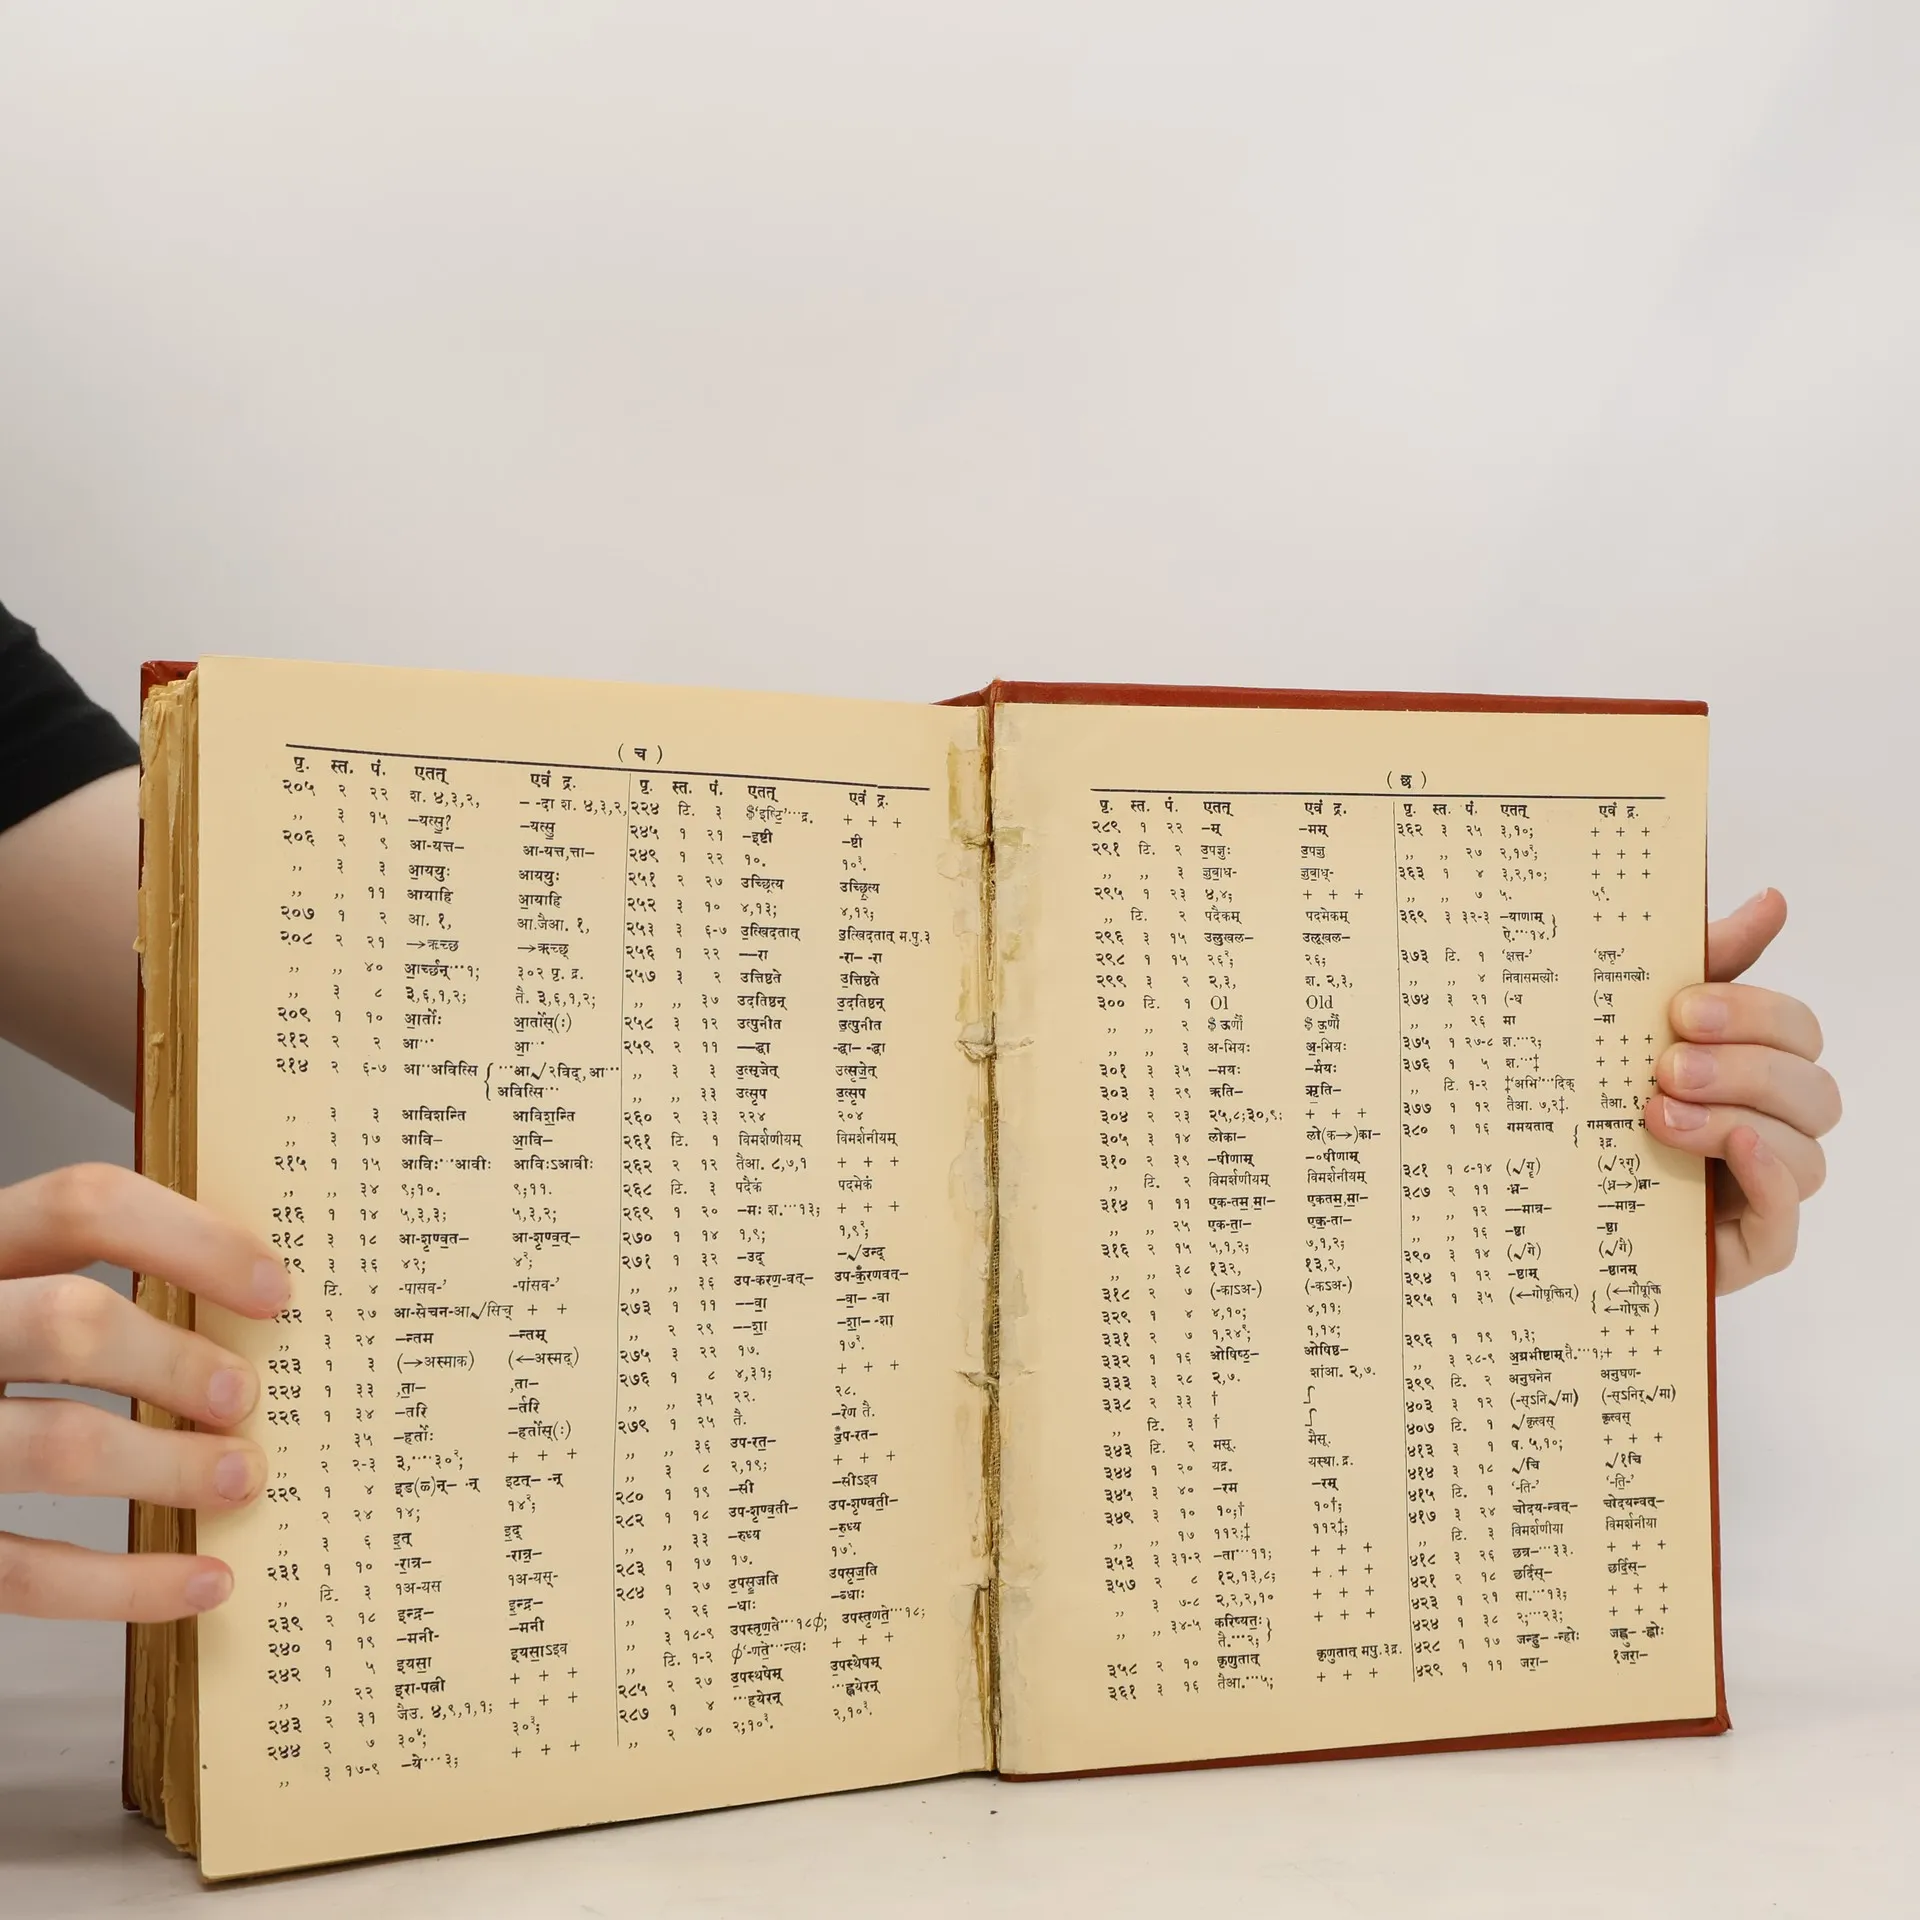 ( च )
पृ. स्त. पं. एतत् एवं द्र.
२०५ २ २२ श. ४,३,२, – -दा श. ४,३,२,
,, ३ १५ –यत्सु? –यत्सु
२०६ २ ९ आ-यत्त– आ-यत्त,त्ता–
,, ३ ३ आययुः आययुः
,, ,, ११ आयाहि आयाहि
२०७ १ २ आ. १, आ.जैआ. १,
२०८ २ २१ →ऋच्छ →ऋच्छ्
,, ,, ४० आर्च्छन्···१; ३०२ पृ. द्र.
,, ३ ८ ३,६,१,२; तै. ३,६,१,२;
२०९ १ १० आर्तोः आर्तोस्(ः)
२१२ २ २ आ··· आ···
२१४ २ ६-७ आ··अवित्सि { ···आ√२विद्,आ···
अवित्सि···
,, ३ ३ आविशन्ति आविशन्ति
,, ३ १७ आवि– आवि–
२१५ १ १५ आविः···आवीः आविःऽआवीः
,, ,, ३४ ९;१०. ९;११.
२१६ १ १४ ५,३,३; ५,३,२;
२१८ ३ १८ आ-शृण्वत– आ-शृण्वत्–
१९ ३ ३६ ४२; ४२;
टि. ४ -पासव-' -पांसव-'
२२२ २ २७ आ-सेचन-आ√सिच् + +
,, ३ २४ –न्तम –न्तम्
२२३ १ ३ (→अस्माक) (←अस्मद्)
२२४ १ ३३ ,ता– ,ता–
२२६ १ ३४ –तरि –र्तरि
,, ,, ३५ –हर्तोः –हर्तोस्(ः)
,, २ २-३ ३,····३०२; + + +
२२९ १ ४ इड(ळ)न्– -न् इटत्– -न्
,, २ २४ १४; १४२;
,, ३ ६ इत् इद्
२३१ १ १० -रात्र– -रात्र–
टि. ३ १अ-यस १अ-यस्-
२३९ २ १८ इन्द्र– इन्द्र–
२४० १ १९ –मनी- –मनी
२४२ १ ५ इयसा इयसाऽइव
,, ,, २२ इरा-पत्नी + + +
२४३ २ ३१ जैउ. ४,९,१,१; + + +
२४४ २ ७ ३०४; ३०३;
,, ३ १७-९ –ये···३; + + +
पृ. स्त. पं. एतत् एवं द्र.
२२४ टि. ३ $'इष्टि'···द्र. + + +
२४५ १ २१ -इष्टी -ष्टी
२४९ १ २२ १०. १०३.
२५१ २ २७ उच्छ्रित्य उच्छृत्य
२५२ ३ १० ४,१३; ४,१२;
२५३ ३ ६-७ उत्खिदतात् उत्खिदतात् म.पु.३
२५६ १ २२ ––रा -रा– -रा
२५७ ३ २ उत्तिष्ठते उत्तिष्ठते
,, ,, ३७ उदतिष्ठन् उदतिष्ठन्
२५८ ३ १२ उत्पुनीत उत्पुनीत
२५९ २ ११ ––द्धा -द्धा– -द्धा
,, ३ ३ उत्सृजेत् उत्सृजेत्
,, ,, ३३ उत्सृप उत्सृप
२६० २ ३३ २२४ २०४
२६१ टि. १ विमर्शणीयम् विमर्शनीयम्
२६२ २ १२ तैआ. ८,७,१ + + +
२६८ टि. ३ पदैकं पदमेकं
२६९ १ २० -मः श.···१३; + + +
२७० १ १४ १,९; १,९२;
२७१ १ ३२ –उद् –√उन्द्
,, ,, ३६ उप-करण-वत्– उप-करणवत्–
२७३ १ ११ ––वा –वा– -वा
,, २ २९ ––शा –शा– -शा
२७५ ३ २२ १७. १७२.
२७६ १ ८ ४,३१; + + +
,, ,, ३५ २२. २८.
२७९ १ २५ तै. –रेण तै.
,, ,, ३६ उप-रत– उप-रत–
,, ३ ८ २,१९; + + +
२८० १ १९ –सी –सीऽइव
२८२ १ १८ उप-शृण्वती– उप-शृण्वती–
,, ,, ३३ –रुध्य –रुध्य
२८३ १ १७ १७. १७
२८४ १ २७ उपसृजति उपसृजति
,, २ २६ -धाः -ब्धाः
,, ३ १८-९ उपस्तृणते···१८φ; उपस्तृणते···१८;
,, टि. १-२ φ'-णते···न्त्यः + + +
२८५ २ २७ उपस्थषेम् उपस्थेषम्
२८७ १ ४ ···हयेरन् ···ह्वयेरन्
,, २ ४० २;१०३. २,१०३.
( छ )
पृ. स्त. पं. एतत् एवं द्र.
२८९ १ २२ –म् –मम्
२९१ टि. २ उपज्ञुः उपज्ञु
,, ,, ३ ज्ञुबाध- ज्ञुबाध्-
२९५ १ २३ ४,४; + + +
,, टि. २ पदैकम् पदमेकम्
२९६ ३ १५ उलुखल– उलूखल–
२९८ १ १५ २६२; २६;
२९९ ३ २ २,३, श. २,३,
३०० टि. १ Ol Old
,, ,, २ $ ऊर्णौ $ ऊर्णौ
,, ,, ३ अ-भियः अ-भियः
३०१ ३ ३५ -मयः -र्मयः
३०३ ३ २९ ऋति– ऋति–
३०४ २ २३ २५,८;३०,९: + + +
३०५ ३ १४ लोका– लो(क→)का–
३१० २ ३९ -षीणाम् -०षीणाम्
,, टि. २ विमर्शणीयम् विमर्शनीयम्
३१४ १ ११ एक-तम,मा– एकतम,मा–
,, ,, २५ एक-ता– एक-ता–
३१६ २ १५ ५,१,२; ७,१,२;
,, ,, ३८ १३२, १३,२,
३१८ २ ७ (-काऽअ-) (-कऽअ-)
३२९ १ ४ ४,१०; ४,११;
३३१ २ ७ १,२४९; १,१४;
३३२ १ १६ ओषिष्ठ– ओषिष्ठ–
३३३ ३ २८ २,७. शांआ. २,७.
३३८ २ ३३ † ∫
,, टि. ३ † ∫
३४३ टि. २ मसू. मैसू.
३४४ १ २० यद्र. यस्था.द्र.
३४५ ३ ४० -रम –रम्
३४९ ३ १० १०;† १०†;
,, ,, १७ ११२;‡ ११२‡;
३५३ ३ ३१-२ –ता···११; + + +
३५७ २ ८ १२,१३,८; + + +
,, ३ ७-८ २,२,२,१० + + +
,, ,, ३४-५ करिष्यतः } + + +
तै.···२;
३५८ २ १० कृणुतात् कृणुतात् मपु.३द्र.
३६१ ३ १६ तैआ.···५; + + +
पृ. स्त. पं. एतत् एवं द्र.
३६२ ३ २५ ३,१०; + + +
,, ,, २७ २,१७२; + + +
३६३ १ ४ ३,२,१०; + + +
,, ,, ७ ५. ५६.
३६९ ३ ३२-३ –याणाम् } + + +
ऐ.···१४.
३७३ टि. १ 'क्षत्त-' 'क्षत्तृ-'
,, ,, ४ निवासमत्योः निवासगत्योः
३७४ ३ २१ (-ध (-ध्
,, ,, २६ मा –मा
३७५ १ २७-८ श.···२; + + +
३७६ १ ५ श.···‡ + + +
,, टि. १-२ ‡'अभि'···दिक् + + +
३७७ १ १२ तैआ. ७,२‡. तैआ. १,
३८० १ १६ गमयतात् { गमयतात् म
३द्र.
३८१ १ ८-१४ (√गॄ) (√२गॄ)
३८७ २ ११ -ध्र– -(ध्र→)ध्रा–
,, ,, १२ ––मात्र– ––मात्र–
,, ,, १६ -ष्ठा -ष्ठा
३९० ३ १४ (√गे) (√गै)
३९४ १ १२ -ष्ठाम् -ष्ठानम्
३९५ १ ३५ (←गोषूक्तिन्) { (←गौषूक्ति
←गोषूक्त )
३९६ १ १९ १,३; + + +
,, ३ २८-९ अग्रभीष्टाम् तै.···१; + + +
३९९ टि. २ अनुघनेन अनुघण-
४०३ ३ १२ (-सऽनि√मा) (-सऽनिर्√मा)
४०७ टि. १ √कृत्वस् कृत्वस्
४१३ ३ १ ष. ५,१०; + + +
४१४ ३ १८ √चि √१चि
४१५ टि. १ '-ति-' '-ति-'
४१७ ३ २४ चोदय-न्वत्– चोदयन्वत्–
,, टि. ३ विमर्शणीया विमर्शनीया
४१८ ३ २६ छत्र–···३३. + + +
४२१ २ १८ छर्दिस्– छर्दिस्–
४२३ १ २१ सा.···१३; + + +
४२४ १ ३८ २;···२३; + + +
४२८ १ १७ जन्हु– -न्होः जह्नु– -ह्नोः
४२९ १ ११ जरा– १जरा–